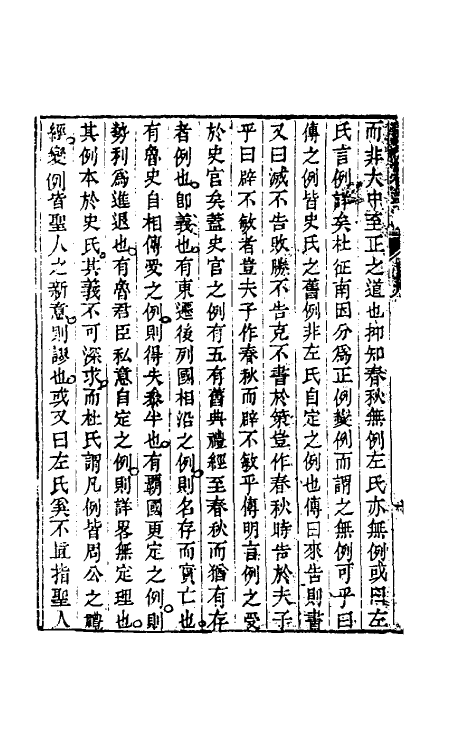 而非大中至正之道也抑知春秋無例左氏亦無例或曰左
氏言例詳矣杜征南因分爲正例變例而謂之無例可乎曰
傳之例皆史氏之舊例非左氏自定之例也傳曰來告則書
又曰滅不告敗勝不告克不書於策豈作春秋時告於夫子
乎曰辟不敏者豈夫子作春秋而辟不敏乎傳明言例之受
於史官矣蓋史官之例有五有舊典禮經至春秋而猶有存
者例也卽義也有東遷後列國相沿之例則名存而實亡也
有魯史自相傳受之例則得失參半也有覇國更定之例則
勢利爲進退也有魯君臣私意自定之例則詳畧無定理也
其例本於史氏其義不可深求而杜氏謂凡例皆周公之禮
經變例皆聖人之新意則謬也或又曰左氏奚不直指聖人